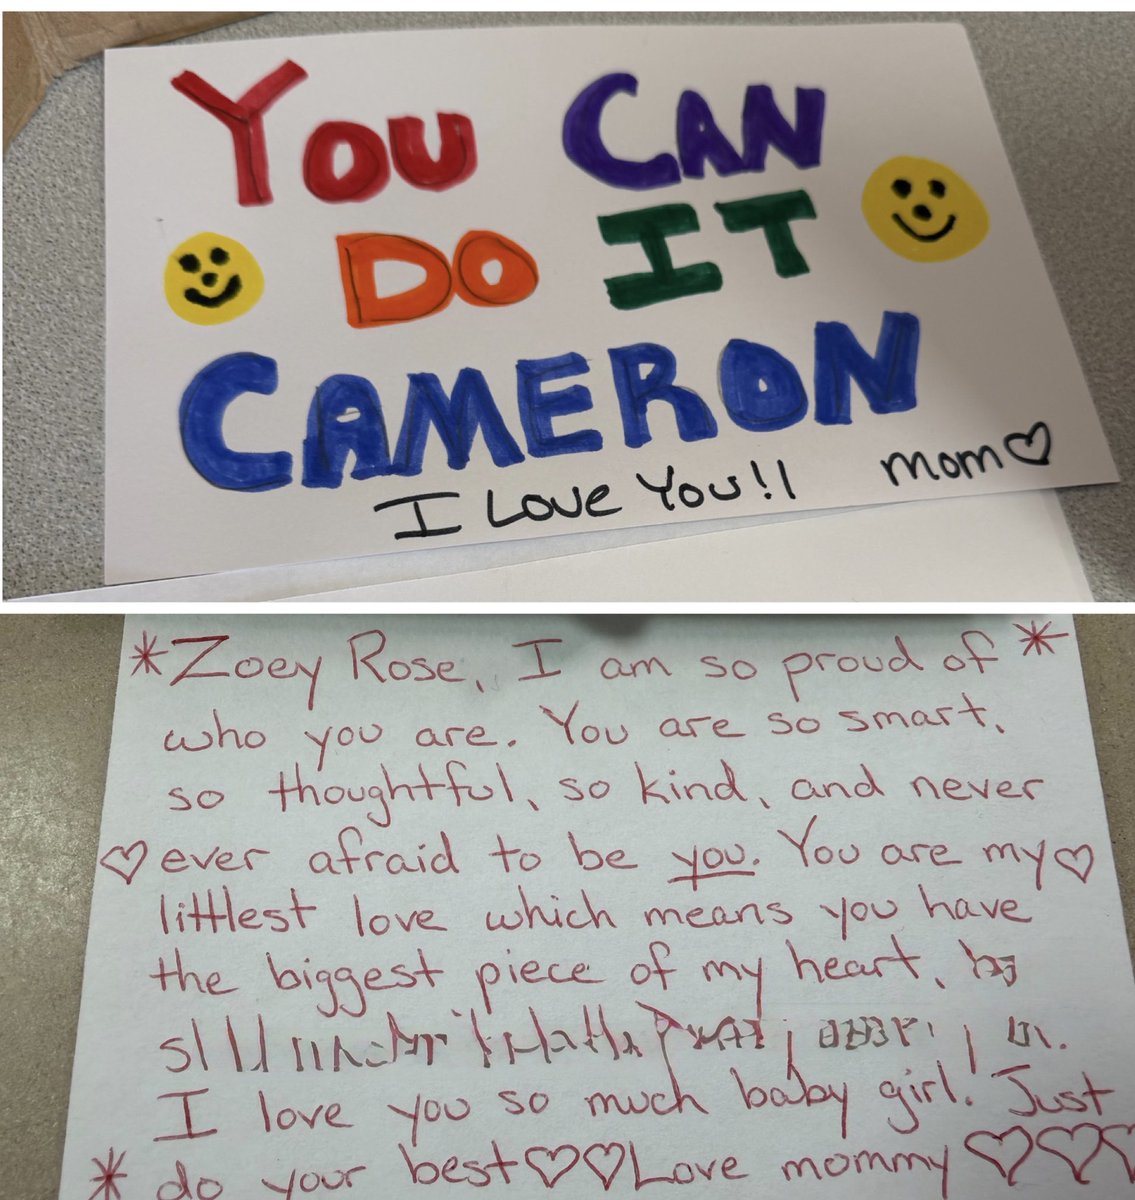 YOU CAN
DO IT
CAMERON
I Love You!!
mom♡
*Zoey Rose, I am so proud of *
who you are. You are so smart,
so thoughtful, so kind, and never
♡ ever afraid to be you. You are my ♡
littlest love which means you have
the biggest piece of my heart.
I love you so much baby girl! Just
* do your best ♡♡ Love mommy ♡♡♡